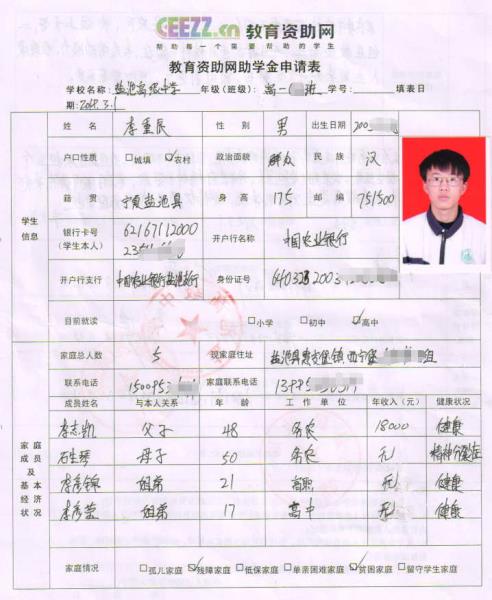 CEEZZ.cn 教育资助网
帮助每一个需要帮助的学生
教育资助网助学金申请表
学校名称: 盐池高级中学 年级(班级): 高一( 班 学号: 填表日
期: 3.1
姓名 李重辰 性别 男 出生日期 200
户口性质 □城填 ☑农村 政治面貌 群众 民族 汉
籍贯 宁夏盐池县 身高 175 邮编 751500
学生信息
银行卡号 (学生本人) 62167112000 235 开户行名称 中国农业银行
开户行支行 中国农业银行盐池支行 身份证号 640323 2003
目前就读 □小学 □初中 ☑高中
家庭总人数 5 现家庭住址 盐池县惠安堡镇 组
联系电话 1500953 家庭联系电话 13895
成员姓名 与本人关系 年龄 工作单位 年收入(元) 健康状况
家庭成员及基本经济状况
李志凯 父子 48 务农 18000 健康
石生琴 母子 50 务农 无 精神
李彦锦 姐弟 21 高职 无 健康
李彦 姐弟 17 高中 无 健康
家庭情况 □孤儿家庭 ☑残障家庭 □低保家庭 □单亲困难家庭 ☑贫困家庭 □留守学生家庭